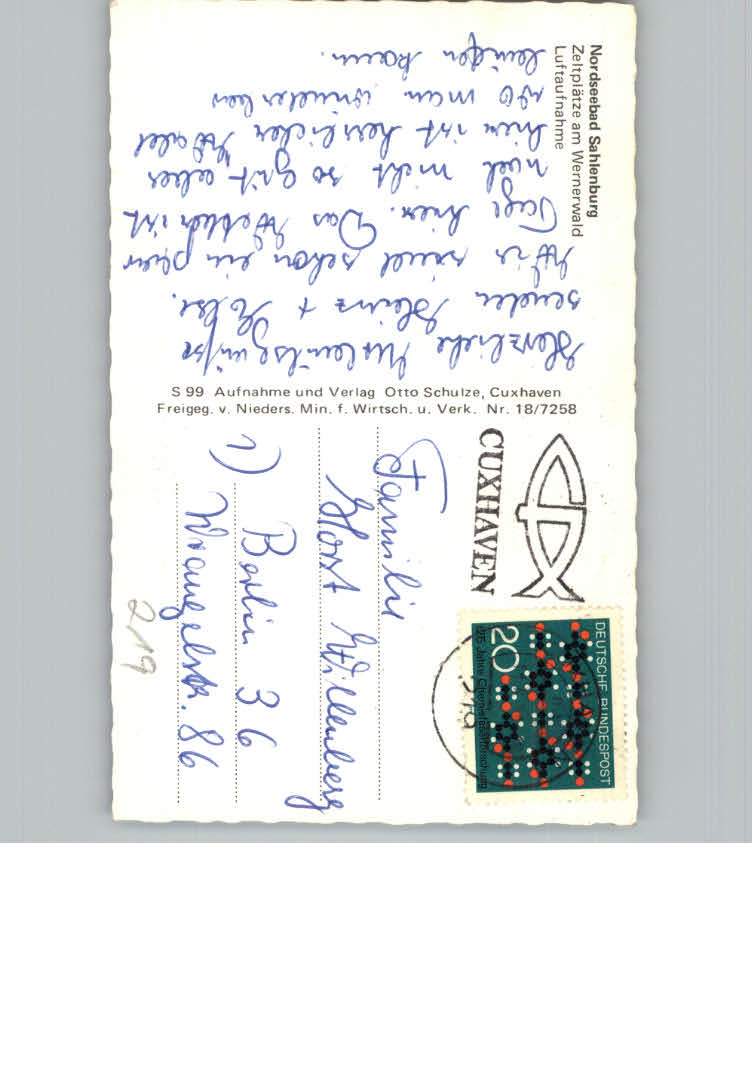 Nordseebad Sahlenburg
Zeltplätze am Wernerwald
Luftaufnahme
Herzliche Urlaubsgrüße
senden Heinz +
Wir sind schon ein paar
Tage hier. Das Wetter ist
nicht so gut aber
hier ist herrlicher Wald
wo man wunderbar
kann.
S 99 Aufnahme und Verlag Otto Schulze, Cuxhaven
Freigeg. v. Nieders. Min. f. Wirtsch. u. Verk. Nr. 18/7258
CUXHAVEN
DEUTSCHE BUNDESPOST
20
125 Jahre Chemiefaserforschung
Familie
Horst Willenberg
1) Berlin 36
Wrangelstr. 86
219